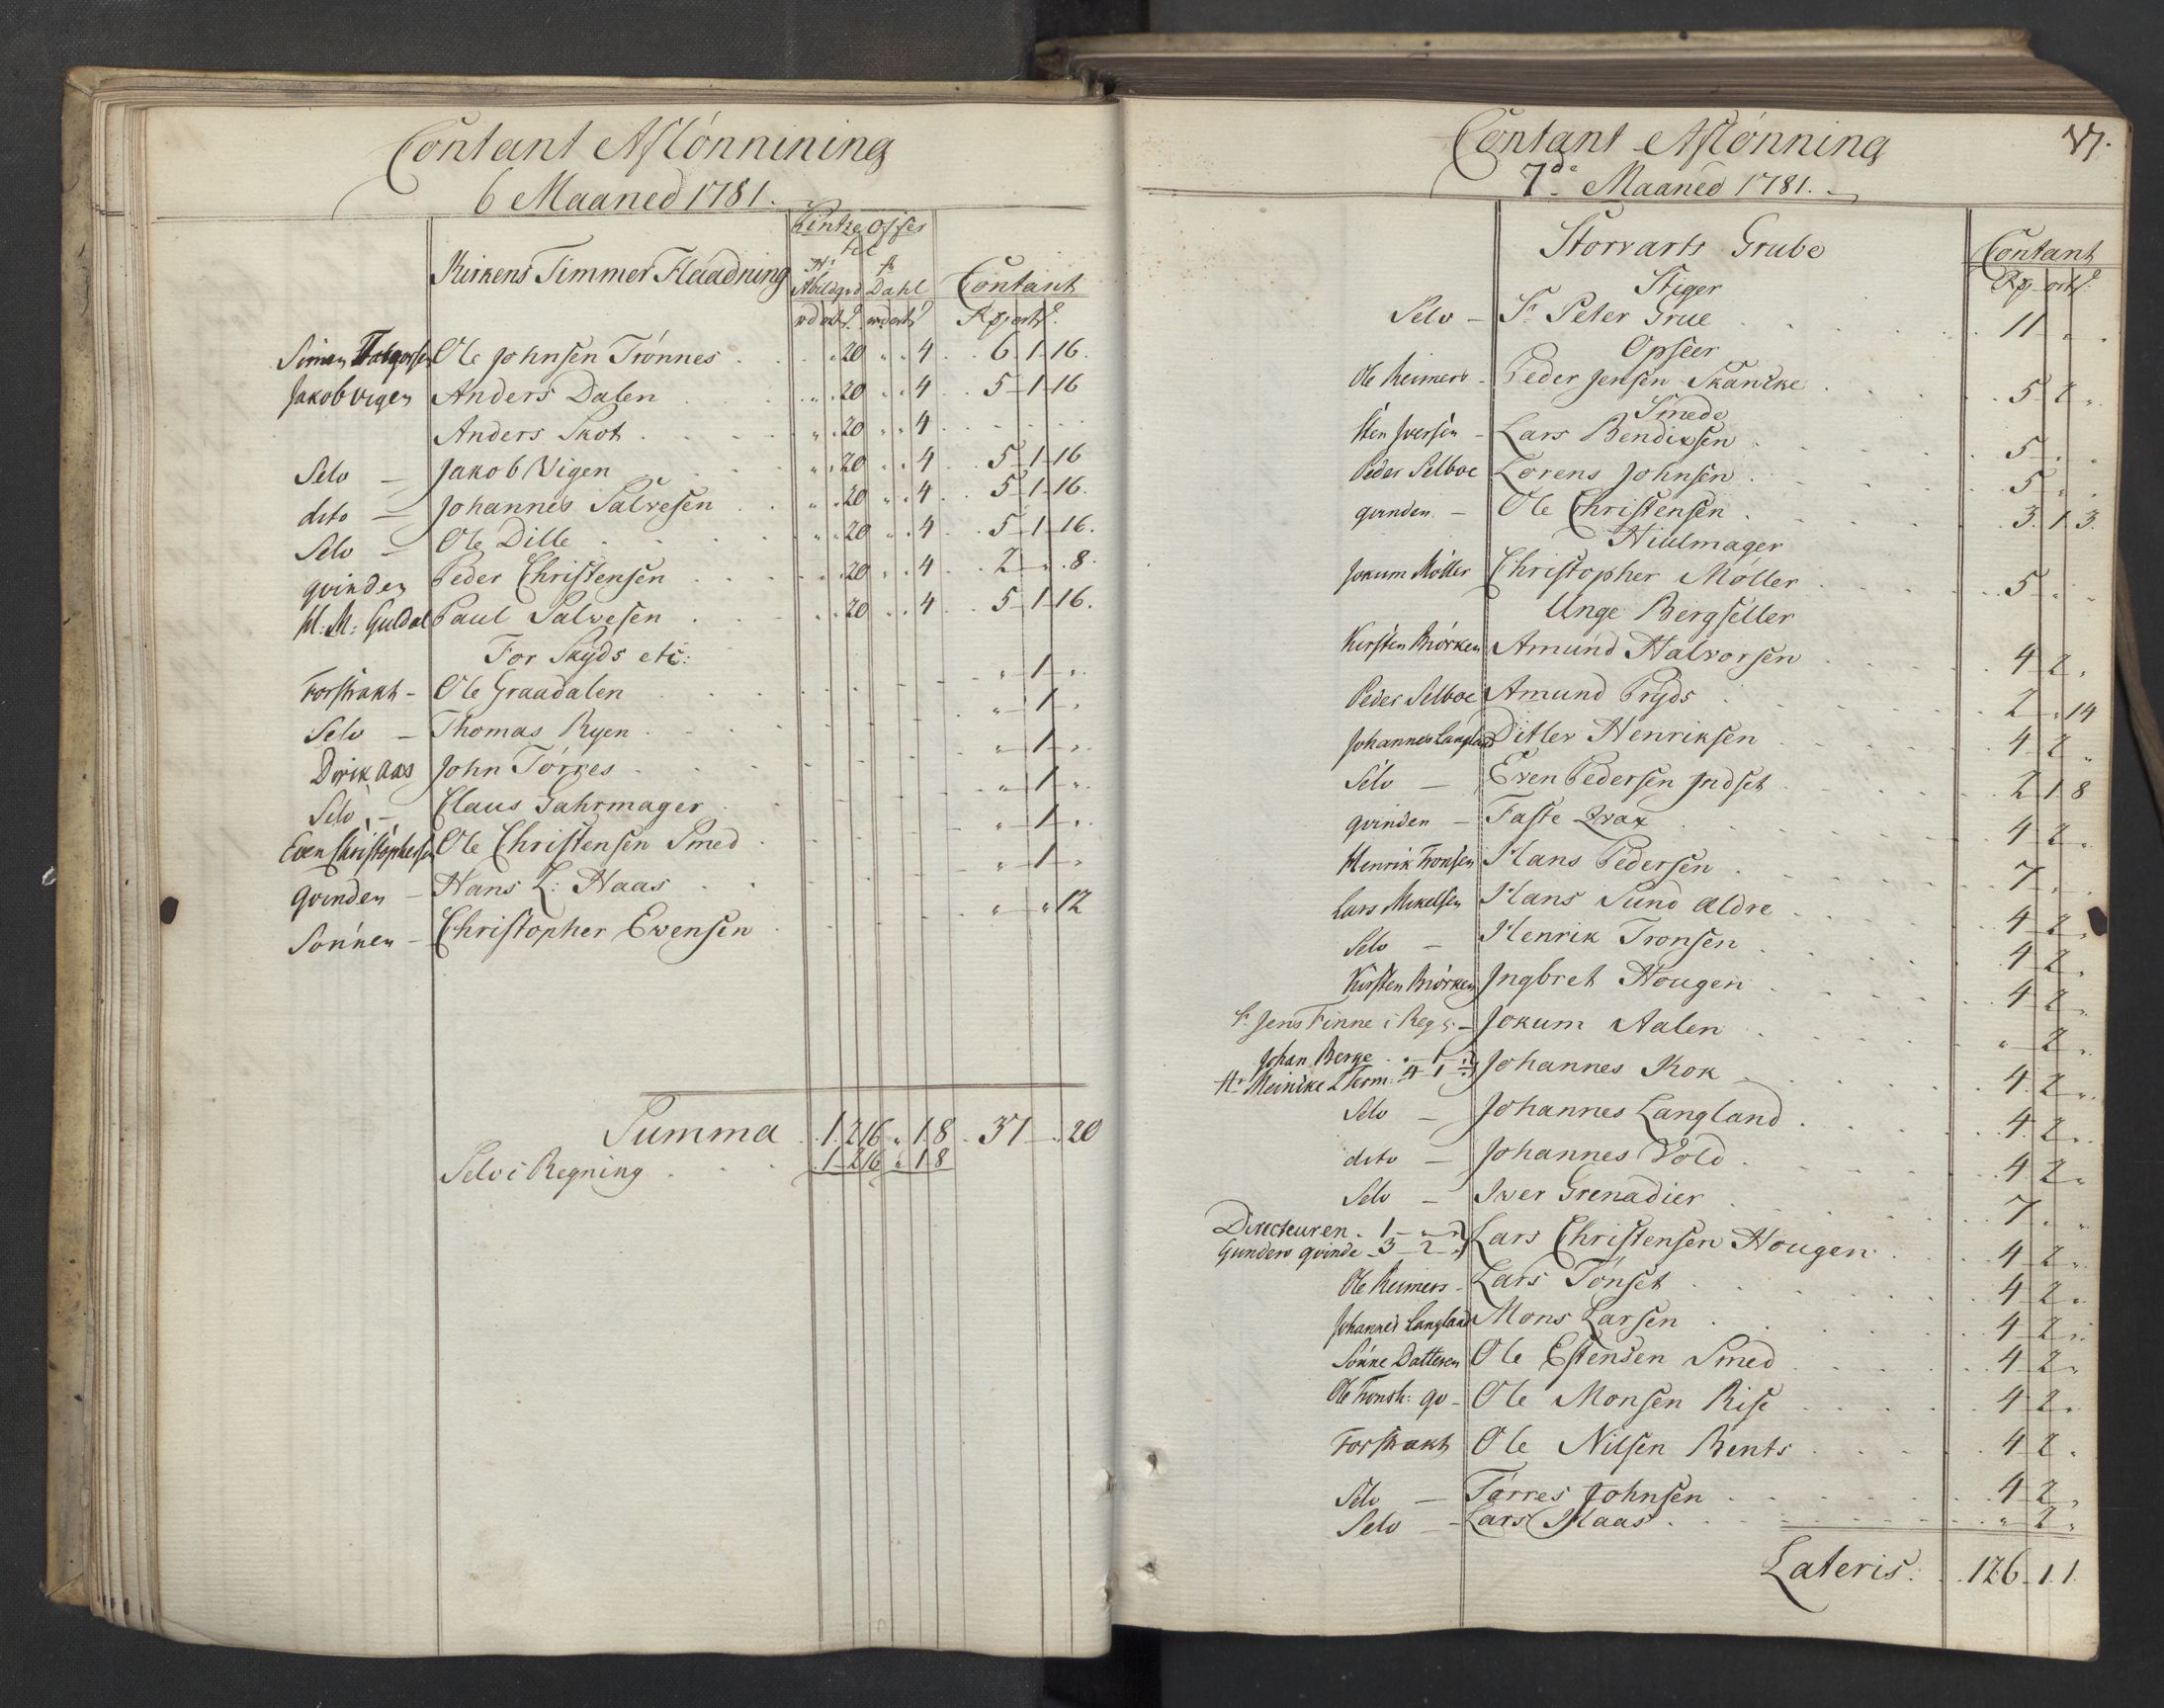 Contant Aflönnining
6 Maaned 1781.
Kirkens Timmer Flaadning
Pintze Offer
til
Hr Abildgrd
Hr Dahl
Contant
rd ort s.
rd ort s
Rg ort s.
Simen Ole Johnsen Trönnes . . . 20 " . 4 . . 6 1 16
Jakob Vigen Anders Dalen . . " . 20 . . 4 . . 5 1 16
Anders Skot . . . " . 20 " " 4 . . . . .
Selv — Jakob Vigen . . . " . 20 " . 4 . . 5 1 16
dito — Johannes Salvesen . . " . 20 " . 4 . . 5 1 16.
Selv — Ole Dille . . . " " 20 " . 4 . . 5 1 16.
qvinden Peder Christensen . . . " 20 " . 4 . . 2 " . 8.
H: M: Guldal Paul Salvesen . . . . 20 " . 4 . . 5 1 16.
For Skyds etc:
Forstrakt - Ole Graadalen . . . " 1 "
Selv — Thomas Ryen . . . " 1 "
Dirik Aas John Törres . . . " 1 "
Selv — Claus Gahrmager . . . " 1 "
Even Christophersen Ole Christensen Smed . . . " 1 "
Qvinden — Hans L: Haas . . . " 1 "
Sönnen — Christopher Evensen . . . " " 12
Summa . 1. 2 16 " 1 8 . 37 — . 20
Selv i Regning . . . . 1 2 16 " 1 8
Contant Aflönning
7de Maaned 1781.
Storvarts Grube
Contant
Rg ort s.
Stiger
Selv — Sr Peter Grue . . . 11 " .
Opseer
Ole Reimers - Peder Jensen Skancke . . . 5 2 "
Smede
Sten Iversen - Lars Bendixsen . . . 5 . .
Peder Selboe Lorens Johnsen . . . 5 " .
qvinden — Ole Christensen . . . 3. 1. 3.
Hiulmager
Jokum Möller Christopher Möller . . . 5 . .
Unge Bergseller
Kirsten Biörken Amund Halvorsen . . . 4 2 .
Peder Selboe Amund Pryds . . . 2 " 14
Johannes Langland Ditlev Henriksen . . . 4 2 "
Selv — Even Pedersen Indset . . . 2 1 8
qvinden — Faste Qvax . . . 4 2 "
Henrik Tronsen Hans Pedersen . . . 7 . .
Lars Mikelsen Hans Sund ældre . . . 4 2 "
Selv — Henrik Tronsen . . . 4 2 "
Kirsten Biörken Ingbret Hougen . . . 4 2 "
Sr Jens Finne i Reg: — Jokum Aalen . . . " 2 "
Johan Berge . " 1 "
Hr Meincke L Term: 4 1 " Johannes Kok . . . 4. 2 "
Selv — Johannes Langland . . . 4. 2 "
dito — Johannes Vold . . . 4. 2 "
Selv — Iver Grenadier . . . 7. "
Directeuren . 1 — "
Gunders qvinde . 3 2 " Lars Christensen Hougen . . . 4 2 "
Ole Reimers - Lars Tönset . . . 4 2 "
Johannes Langland Mons Larsen . . . 4 2 "
Sönne Datteren Ole Estensen Smed . . . 4 2 "
Ole Tronsk: qv - Ole Monsen Rise . . . 4 2 "
Forstrakt Ole Nilsen Rents . . . 4 2 "
Selv — Törres Johnsen . . . 4 2 "
Selv — Lars Haas . . . " 2 "
Lateris: . 126. 1. 1.